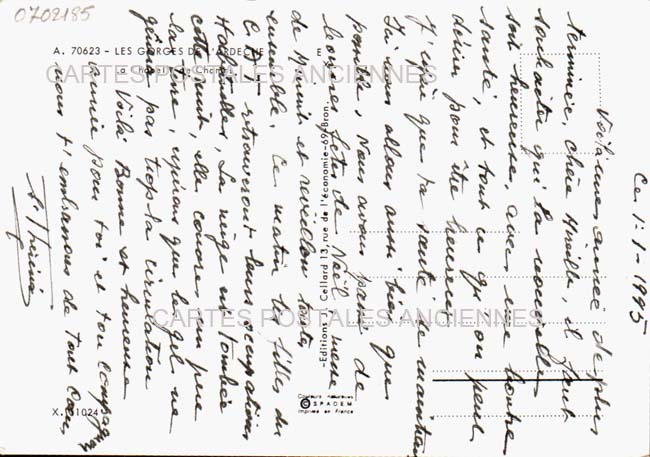 0702185
A. 70623 - LES GORGES DE L'ARDECHE
CARTES POSTALES ANCIENNES
CARTES POSTALES ANCIENNES
Editions J. Cellard 13, rue de l'économie-69-Bron.
Couleurs naturelles
© SPADEM
Imprimé en France
X. 1024
Ce 1° 1-1995
Voilà une année de plus
terminée, chère Mireille, il faut
souhaiter que la nouvelle
soit heureuse, avec une bonne
santé, et tout ce qu'on peut
désirer pour être heureux
J'espère que ta santé se maintien
Ici nous allons aussi bien que
possible. Nous avons passé de
bonnes fêtes de Noël, messe
de Minuit et réveillon toute
ensemble. Ce matin les filles du
retrouveront leurs occupations
Habituelles. La neige est tombée
cette nuit, elle couvre un peu
la terre, espérons que le gel ne
gênera pas trop la circulation
Voilà Bonne et heureuse
année pour toi et ton compagnon
nous t'embrassons de tout coeur